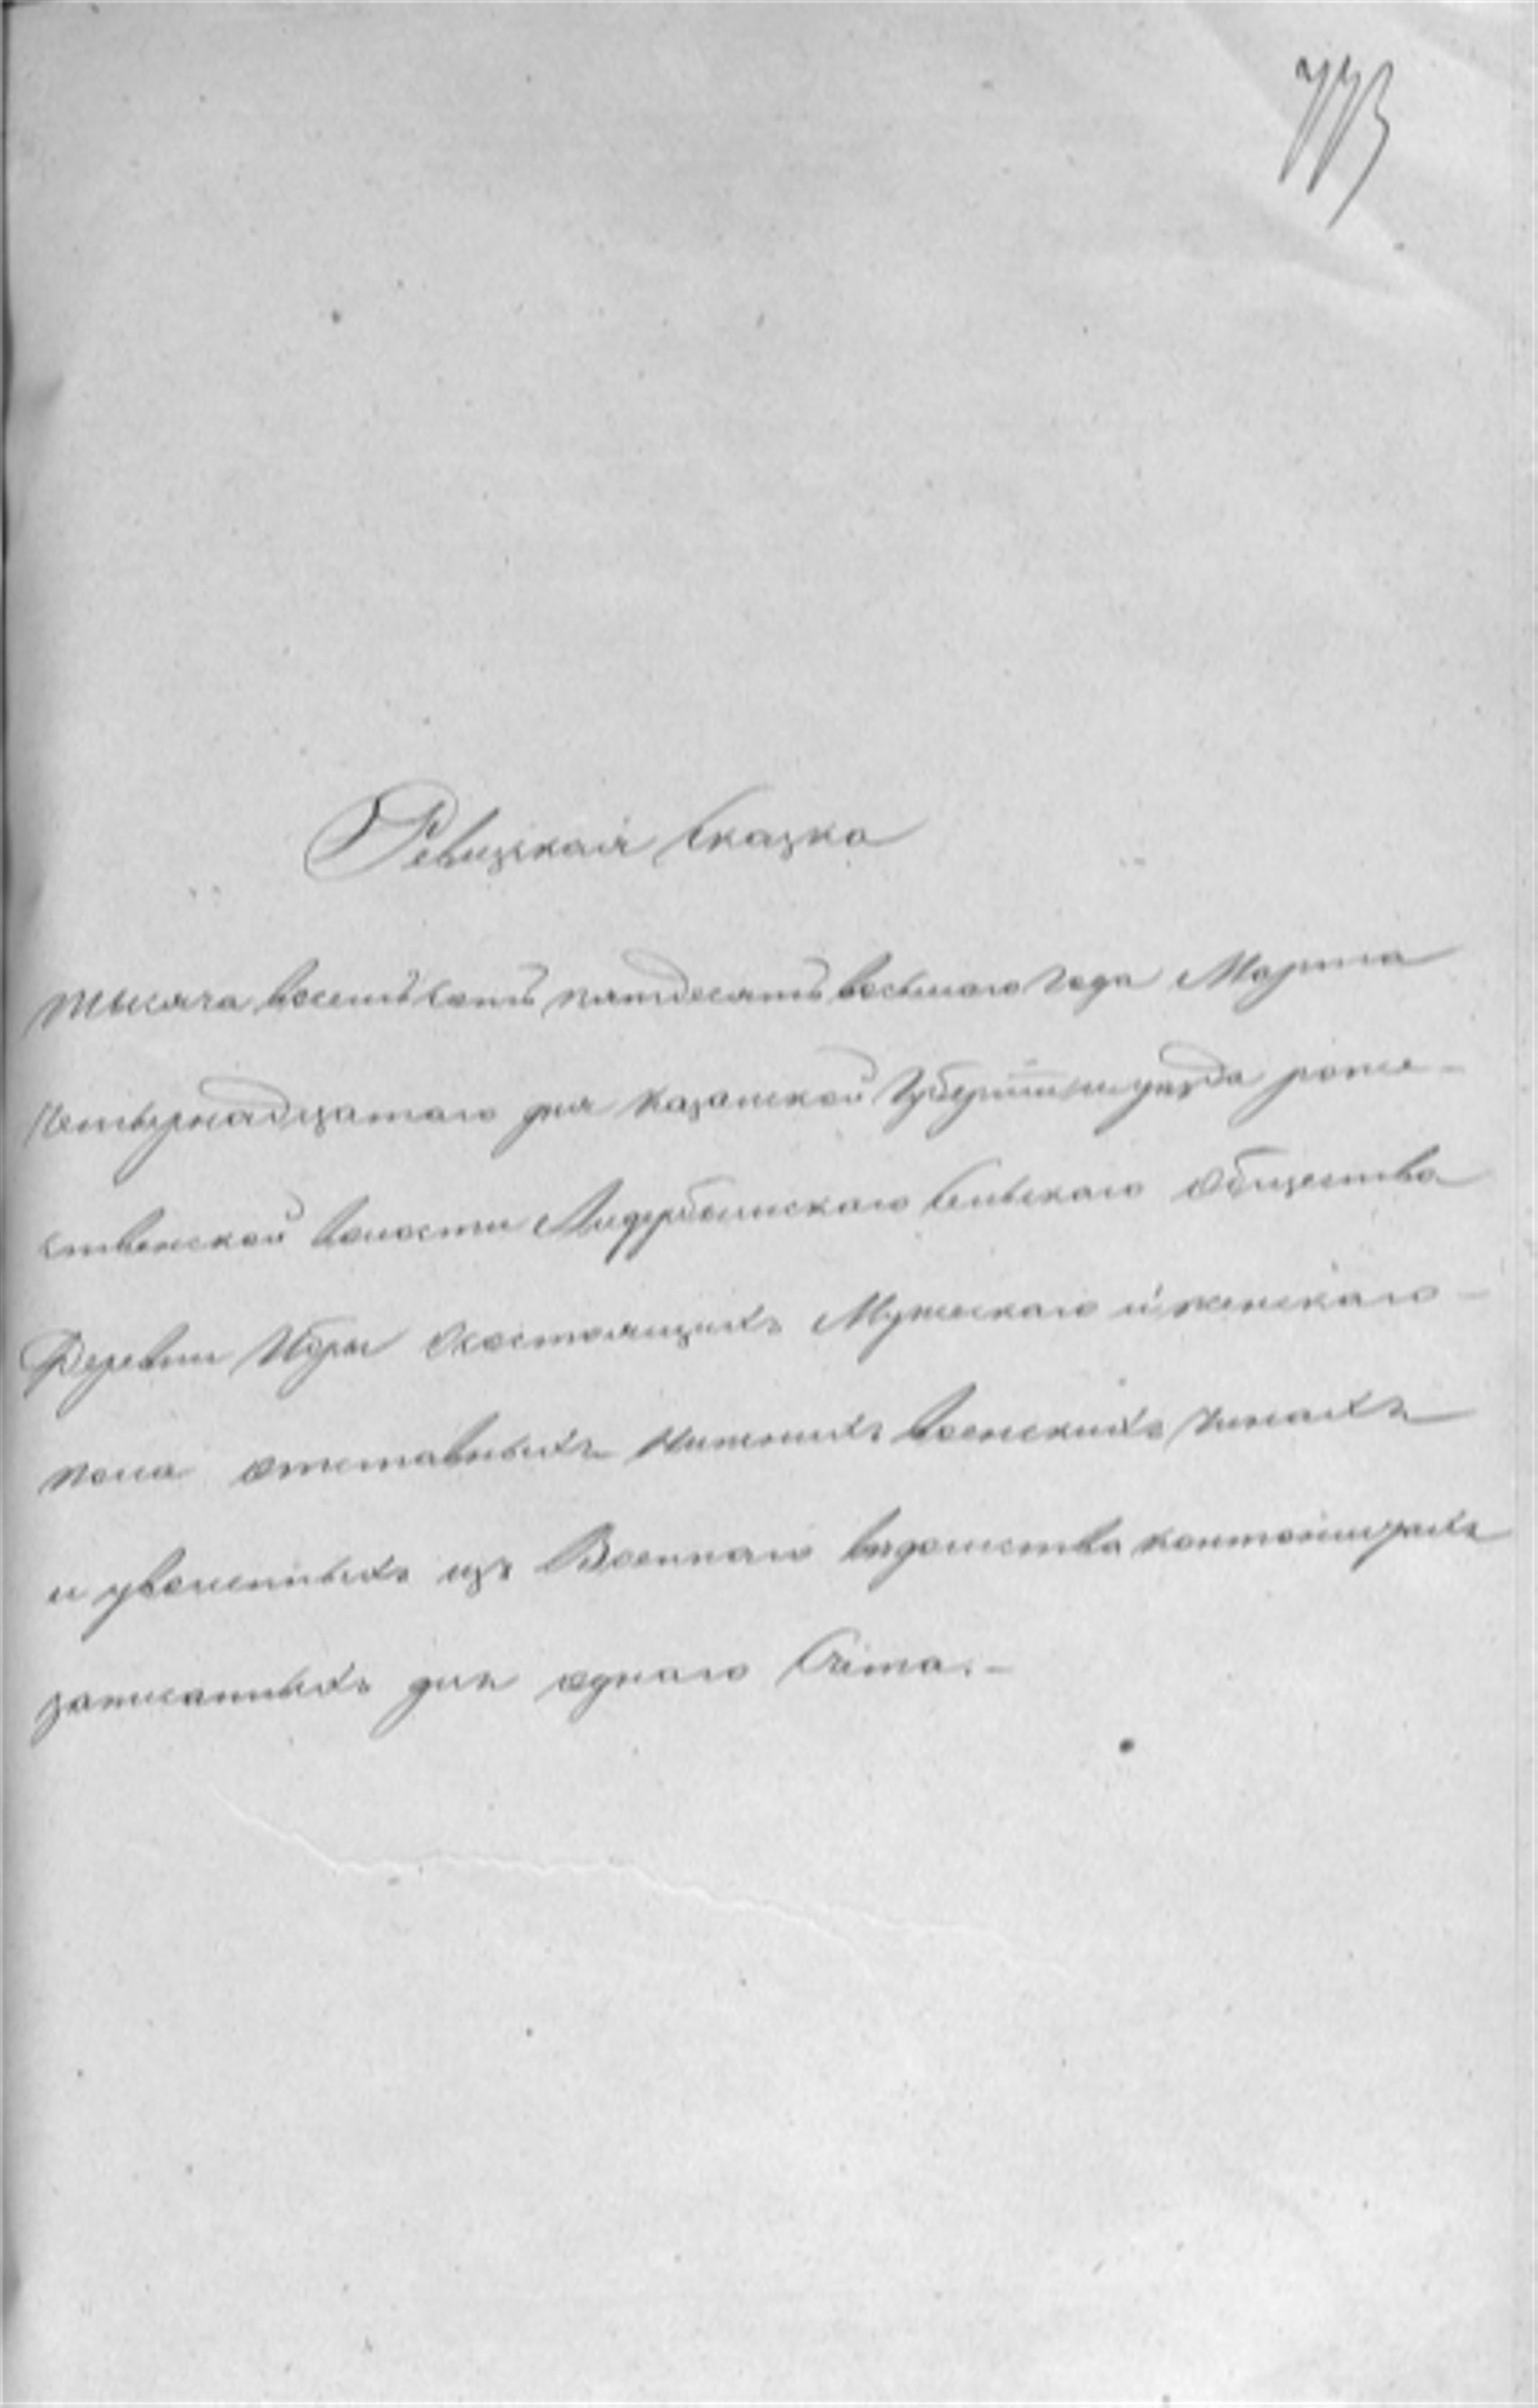 773
Ревизская Сказка
тысяча восемь сотъ пятдесятъ восьмаго года Марта
Четырнадцатаго дня Казанской Губерніи и уезда рожде-
ственской волости Лидербвинскаго сельскаго общества
Деревни состоящихъ Мужескаго и женскаго
пола отставныхъ Нижнихъ воинскихъ чинахъ
и уволенныхъ изъ Военнаго ведомства кантонистахъ
записанныхъ для однаго Счета.